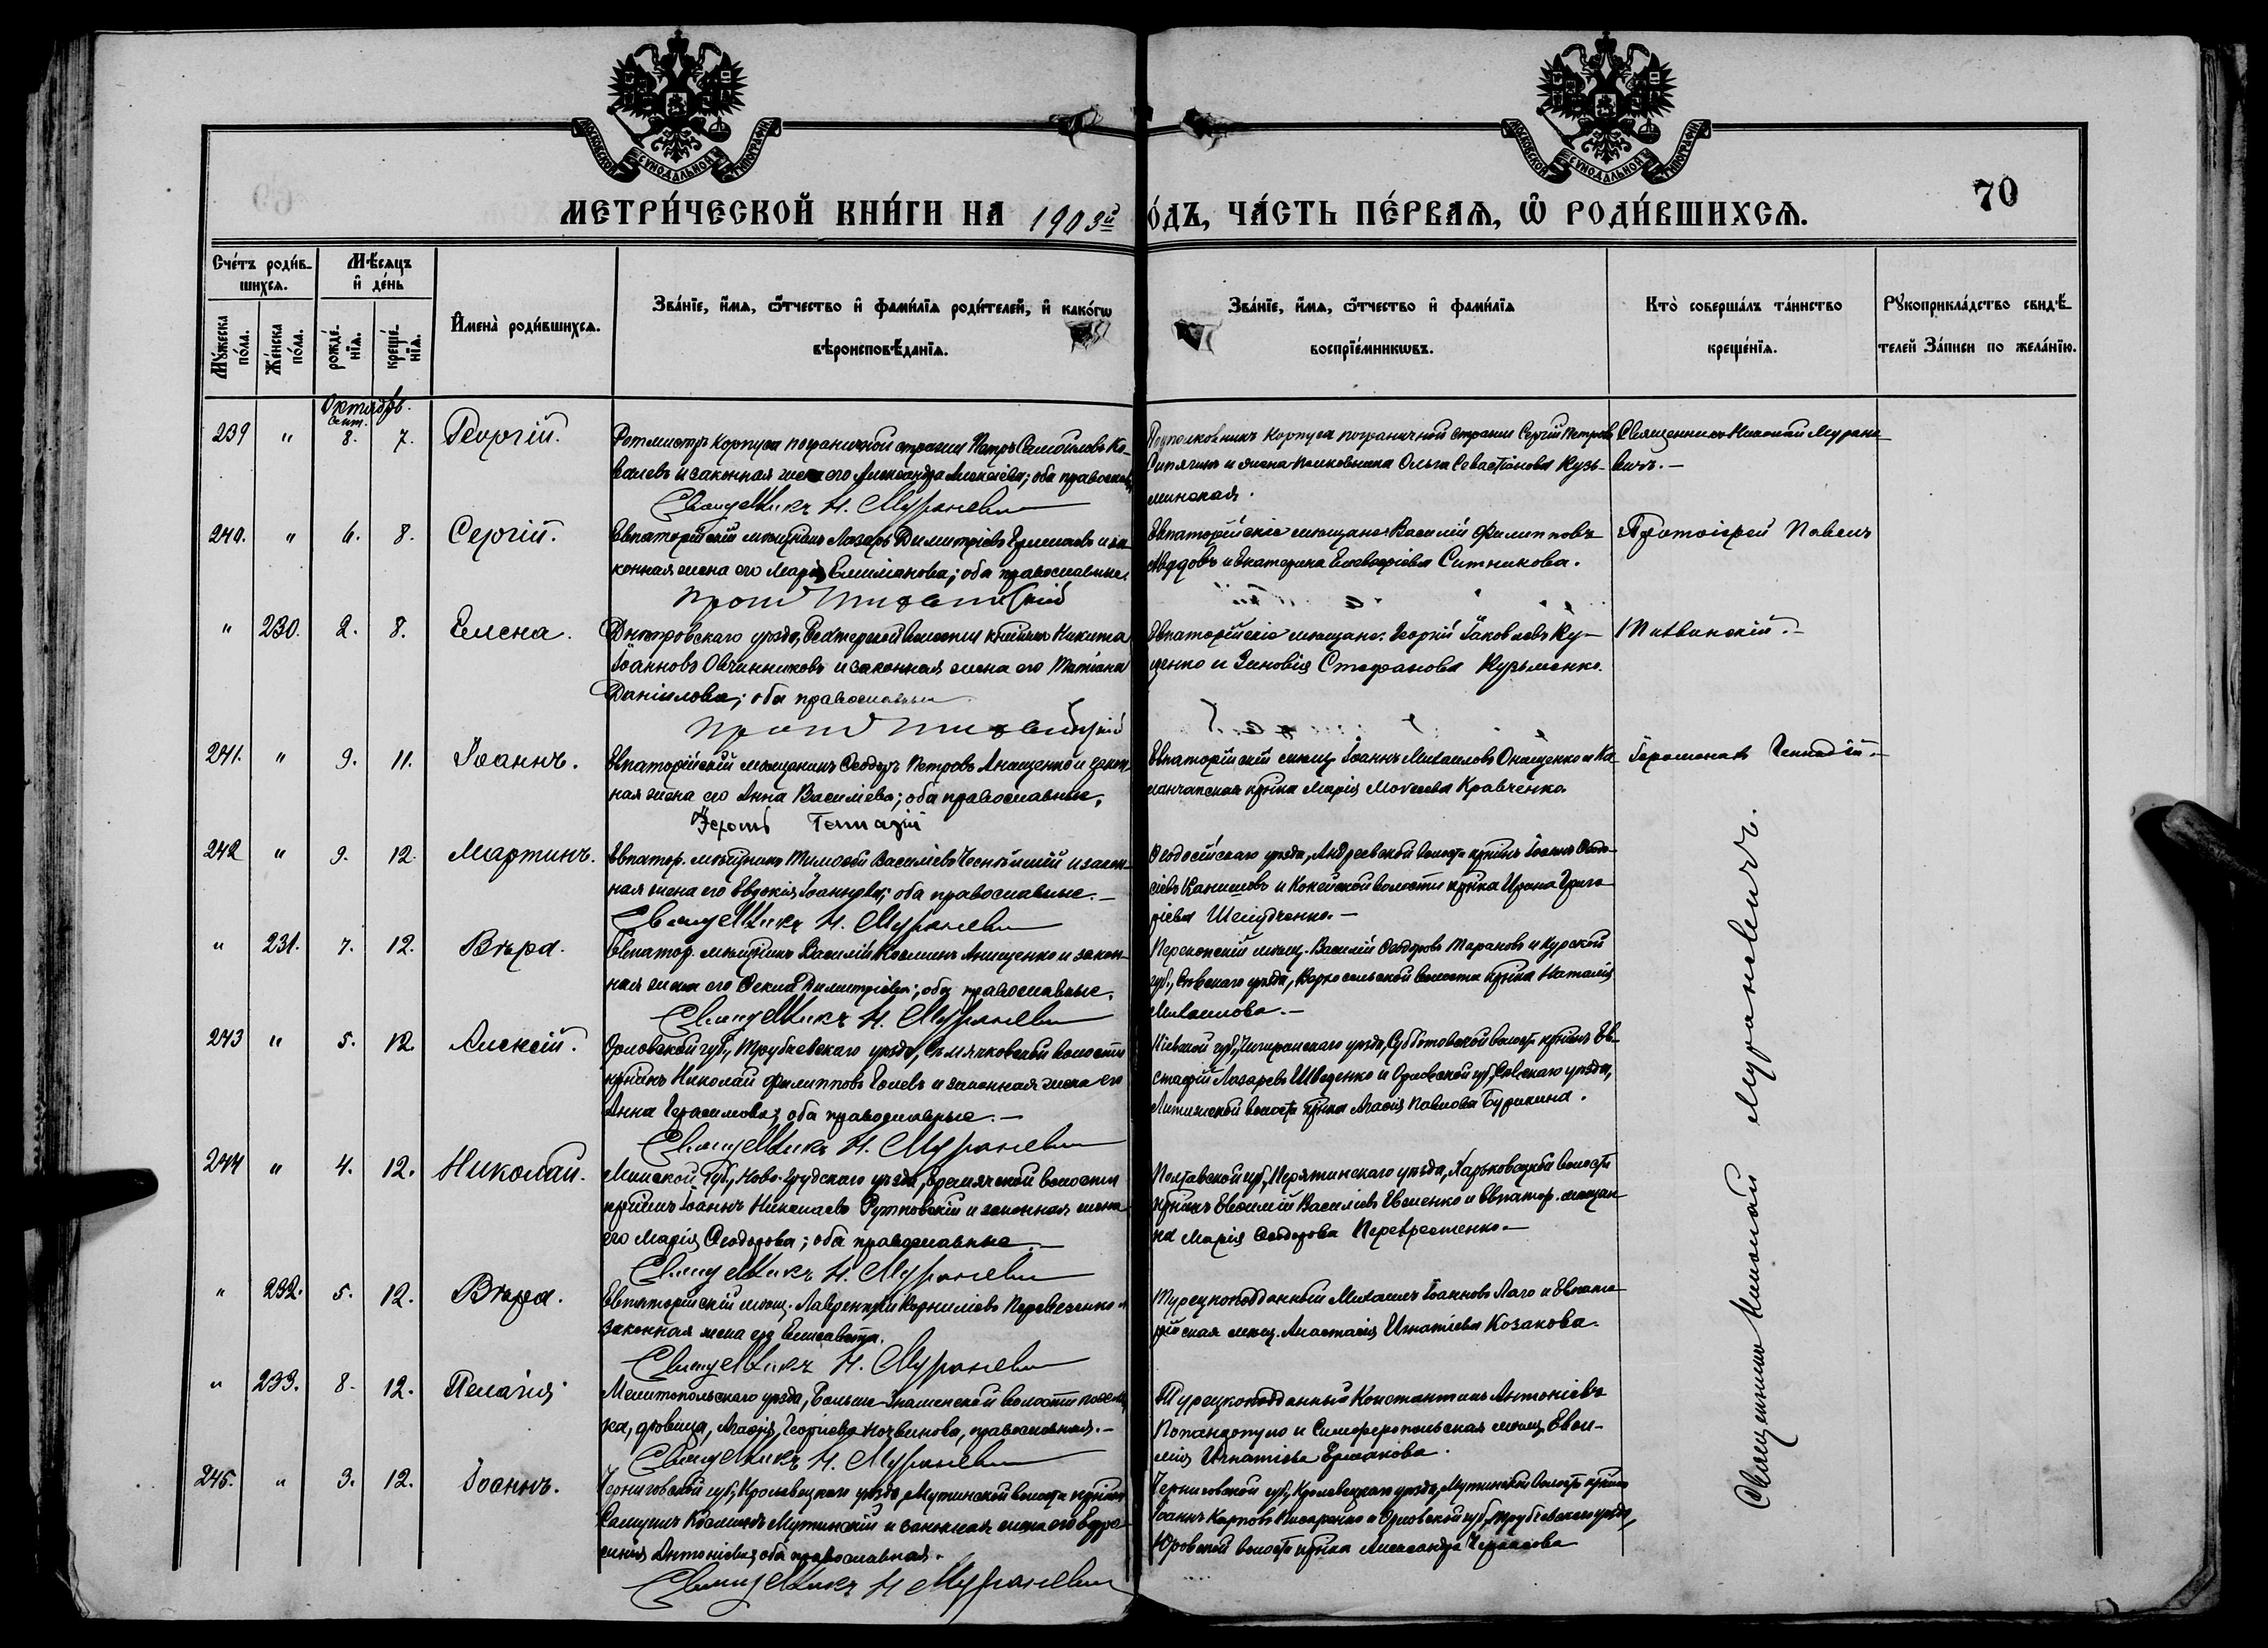 МОСКОВСКОЙ СѴНОДАЛЬНОЙ ТИПОГРАФІИ
МОСКОВСКОЙ СѴНОДАЛЬНОЙ ТИПОГРАФІИ
70
МЕТРИ́ЧЕСКОЙ КНИ́ГИ НА 1903й
О́ДЪ, ЧА́СТЬ ПЕ́РВАѦ, Ѿ РОДИ́ВШИХСѦ.
Сче́тъ роди́в-
шихсѧ.
Мѣ́сѧцъ
и҆ де́нь
Мꙋ́жеска
по́ла.
Же́нска
по́ла.
рожде́-
нїѧ.
креще́-
нїѧ.
И҆мена̀ роди́вшихсѧ.
Зва́нїе, и҆́мѧ, ѻ҆́тчество и҆ фами́лїѧ роди́телей, и҆ како́гѡ
вѣроисповѣ́данїѧ.
Зва́нїе, и҆́мѧ, ѻ҆́тчество и҆ фами́лїѧ
воспрїе́мникѡвъ.
Кто̀ соверша́лъ та́инство
креще́нїѧ.
Рꙋкоприкла́дство свидѣ́-
телей За́писи по жела́нїю.
Октябрь.
Сент.
239 " 8. 7. Георгій.
Ротмистръ Корпуса пограничной стражи Петръ Самойловъ Ко-
валевъ и законная жена его Александра Алексіева; оба православ.
Священникъ Н. Мураневич
Подполковникъ Корпуса пограничной стражи Сергій Петровъ
Сипягинъ и жена полковника Ольга Севастіанова Кузь-
минская.
Священникъ Николай Муране-
вичъ.-
240. " 6. 8. Сергій.
Евпаторійскій мѣщанинъ Лазарь Димитріевъ Ермаковъ и за-
конная жена его Марія Емиліанова; оба православные.
Евпаторійскіе мѣщане: Василій Филипповъ
и Екатерина Ситникова.
Протоіерей Павелъ
" 230. 2. 8. Елена.
Днѣпровскаго уѣзда, волости кр-нинъ Никита
Іоанновъ Овчинниковъ и законная жена его Татіана
Даніилова; оба православные
Евпаторійскіе мѣщане: Георгій Іаковлевъ Ку-
ценко и Зиновія Стефанова Кузьменко.
Тихвинскій.-
241. " 9. 11. Іоаннъ.
Евпаторійскій мѣщанинъ Ѳеодоръ Петровъ Анащенко и закон-
ная жена его Анна Василіева; оба православные.
Іером Геннадій
Евпаторійскій мѣщ. Іоаннъ Михаиловъ Онащенко и Ка-
ланчакская кр-нка Марія Моѵсеева Кравченко
Іеромонахъ Геннадій.-
242 " 9. 12. Мартинъ.
Евпатор. мѣщанинъ Тимоѳей Василіевъ и закон-
ная жена его Евдокія Іоаннова; оба православные.-
Священникъ Н. Мураневич
Ѳеодосійскаго уѣзда, Андреевской волости кр-нинъ Іоаннъ Ѳеодо-
сіевъ и волости кр-нка Ирина Григо-
ріева
" 231. 7. 12. Вѣра.
Евпатор. мѣщанинъ Василій Косминъ Анищенко и закон-
ная жена его Ѳекла Димитріева; оба православные.
Священникъ Н. Мураневич
Перекопскій мѣщ. Василій Ѳеодоровъ Тарановъ и Курской
губ., уѣзда, волости кр-нка Наталія
Михаилова.-
243 " 5. 12. Алексій.
Орловской губ., Трубчевскаго уѣзда, волости
кр-нинъ Николай Филипповъ и законная жена его
Анна Герасимова; оба православные.-
Священникъ Н. Мураневич
Кіевской губ., Чигиринскаго уѣзда, Субботовской волости кр-нинъ Ев-
стафій Лазаревъ Шведенко и Орловской губ., Сѣвскаго уѣзда,
волости кр-нка Агафія Павлова
244 " 4. 12. Николай.
Минской губ., Ново-грудскаго уѣзда, волости
кр-нинъ Іоаннъ Николаевъ Рутковскій и законная жена
его Марія Ѳеодорова; оба православные.-
Священникъ Н. Мураневич
Полтавской губ., Пирятинскаго уѣзда, Харьковецкой волости
кр-нинъ Евѳимій Василіевъ Евсценко и Евпатор. мѣщан-
ка Марія Ѳеодорова Перехрестенко.-
" 232. 5. 12. Вѣра.
Евпаторійскій мѣщ. Лаврентій Корниліевъ и
законная жена его Елисавета.
Священникъ Н. Мураневич
Турецкоподданный Михаилъ Іоанновъ Лаго и Евпато-
рійская мѣщ. Анастасія Игнатіева Козакова.
" 233. 8. 12. Пелагія.
Мелитопольскаго уѣзда, Больше-Знаменской волости поселян-
ка, дѣвица, Агафія Георгіева православная.-
Священникъ Н. Мураневич
Турецкоподданный Константинъ Антоніевъ
Попандопуло и Симферопольская мѣщ. Евѳи-
мія Игнатіева Ермакова.
245. " 3. 12. Іоаннъ.
Черниговской губ., Кролевецкаго уѣзда, Мутинской волости кр-нинъ
Самуилъ Косминъ Мутинскій и законная жена его Евфро-
синія Антоніева; оба православные.
Священникъ Н Мураневич
Черниговской губ., Кролевецкаго уѣзда, Мутинской волости кр-нинъ
Іоаннъ Карповъ Писаренко и Орловской губ., Трубчевскаго уѣзда,
Юровской волости кр-нка Александра
Священникъ Николай Мураневичъ.